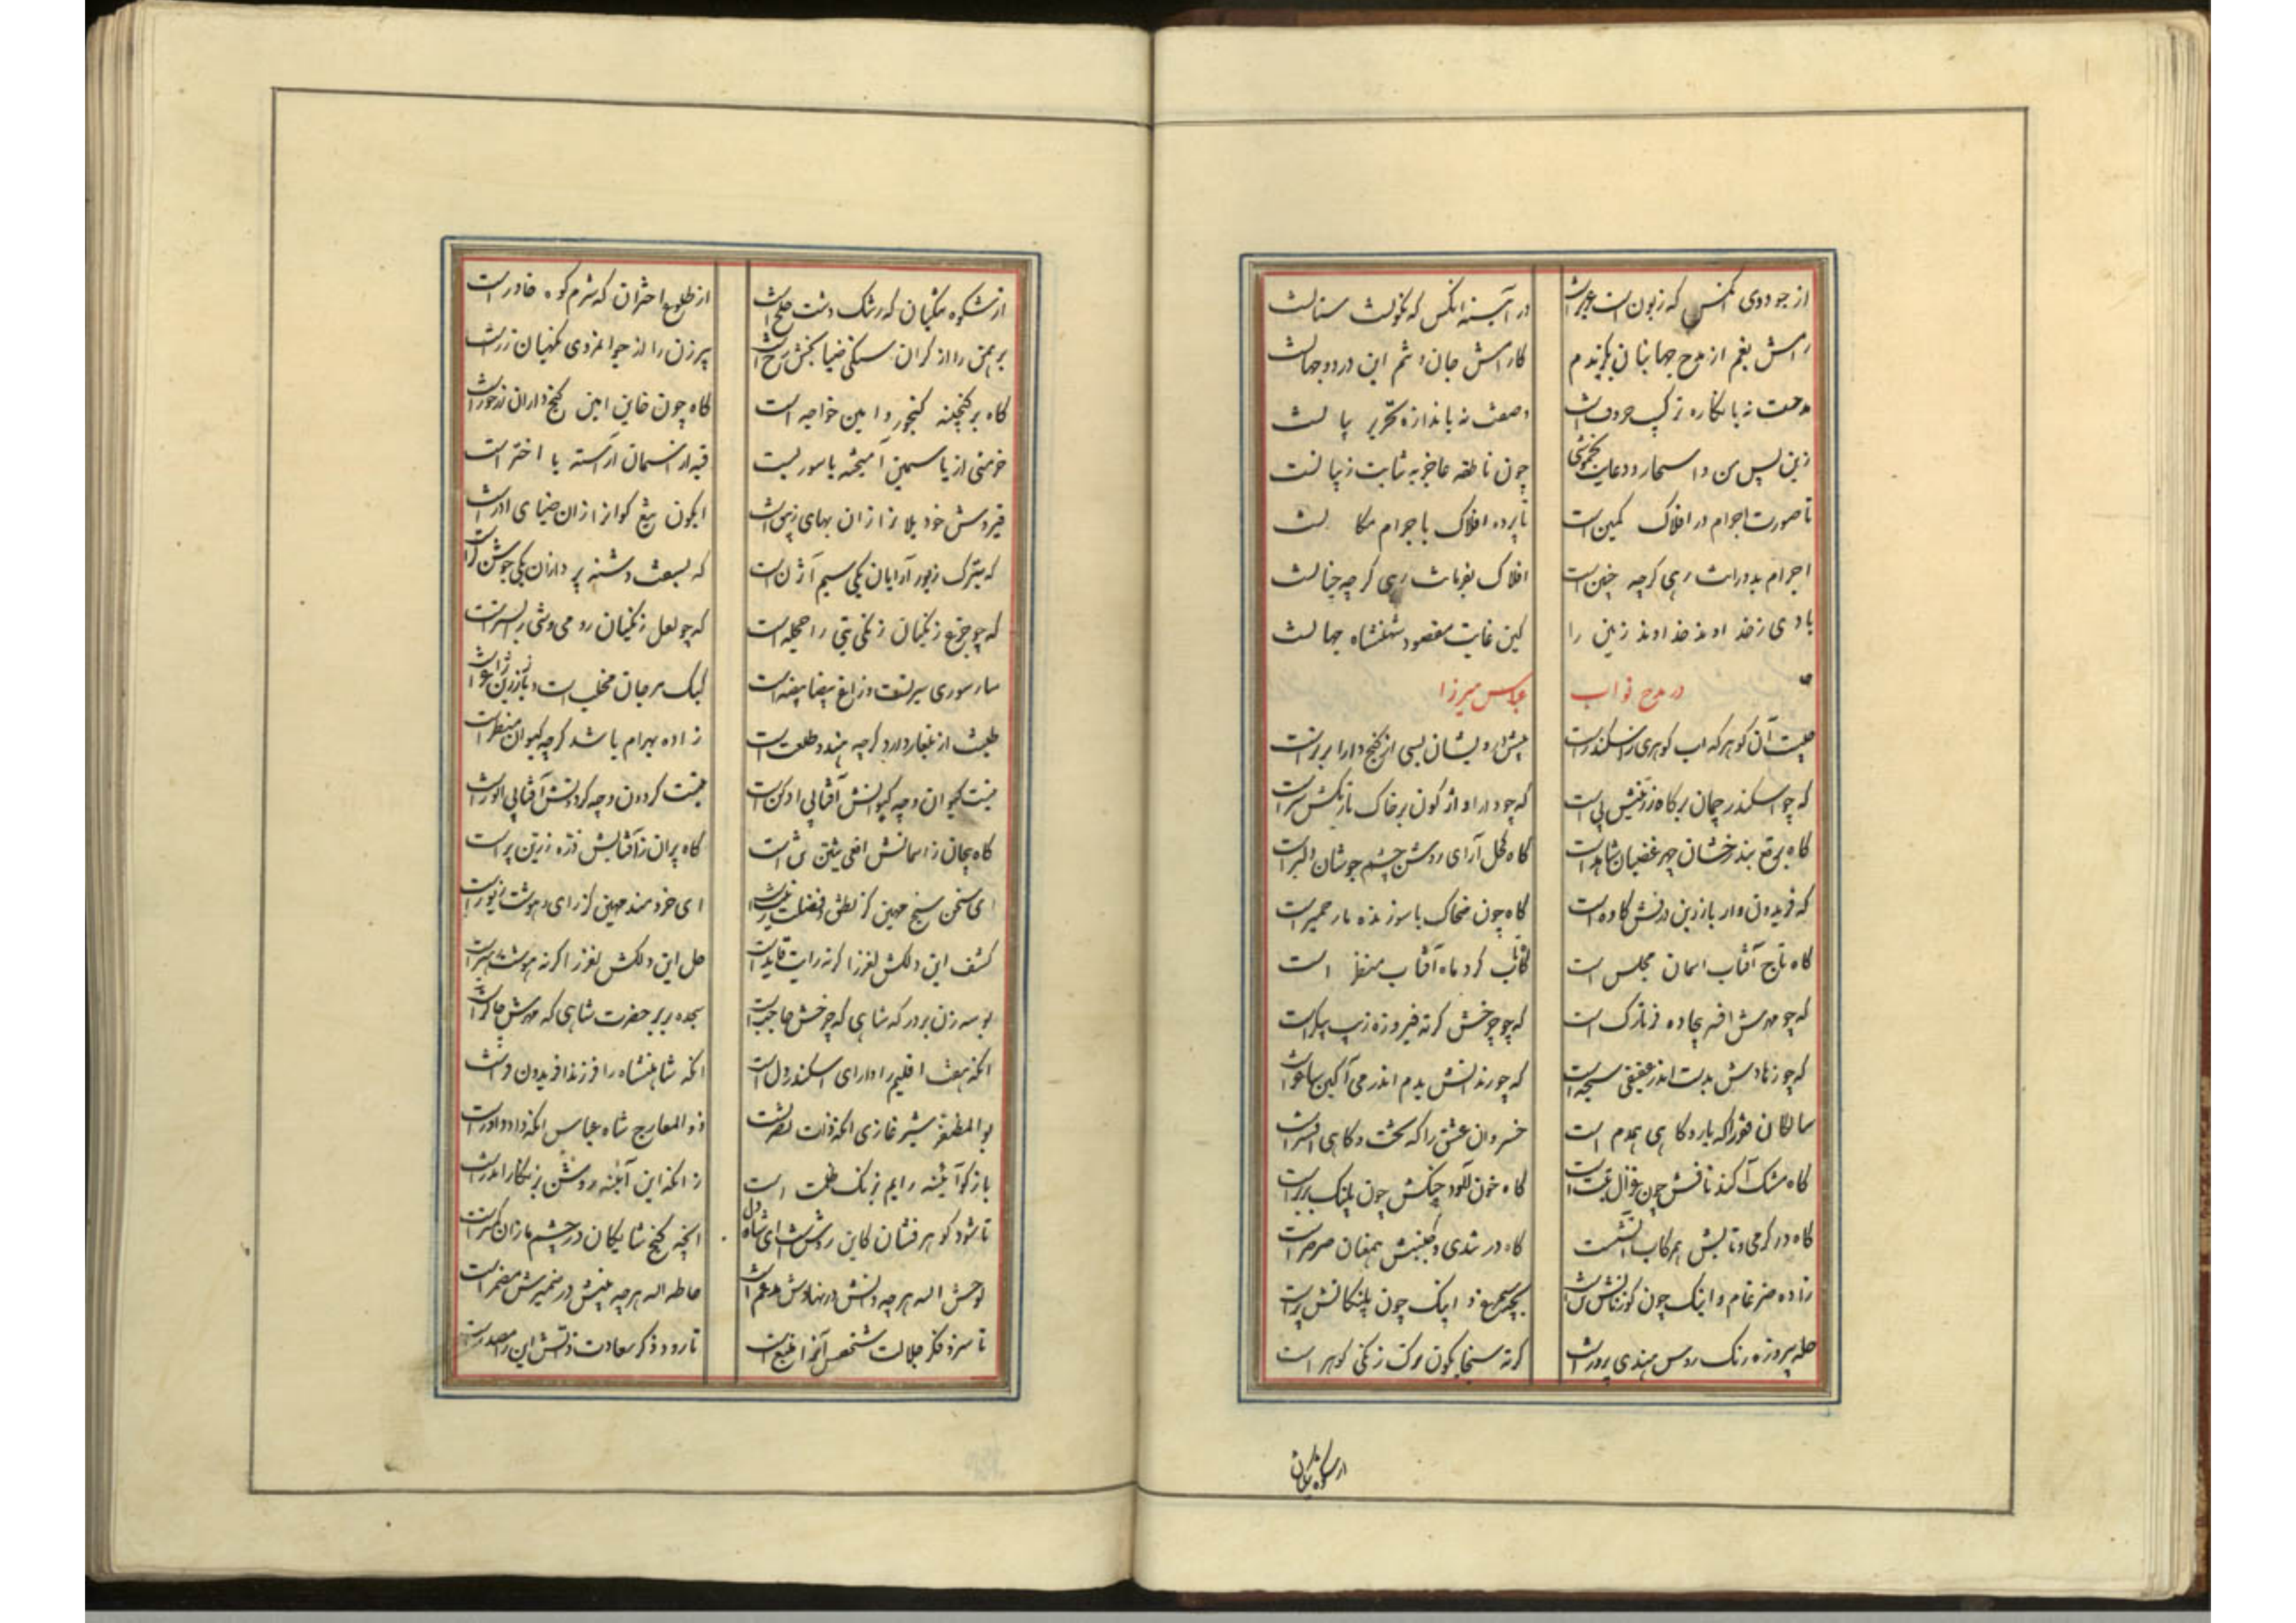 از جودوی آنکس که زبون است عیرانست در آینه آنکس که نکوئست سنانست
رامش بغم از مدح جهانبان بگزیدم کارامش جان و تنم این در دو جهانست
مدحت نه باندازه ترکیب حروفست وصفت نه باندازه تحریر بیانست
زین پس من و اسحار و دعایت بخموشی چون ناطقه عاجز به ثنایت ز بیانست
تا صورت اجرام در افلاک مکین است تا پرده افلاک باجرام مکانست
اجرام بدورانت رهی گرچه چنین است افلاک بفرمانت رهی گرچه چنانست
بادی ز خداوند خداوند زمین را کین غایت مقصود شهنشاه جهانست
در مدح نواب عباس میرزا
چیست آن گوهر که اب گوهری ز اسکندر است پیش درویشان بسی از گنج دارا برتر است
که چو اسکندر چمان بر کاه زرینش پی است که چو دارا واژگون بر خاک نازنکش سر است
کاه بی برقع بند رخشان چهر غضبان شاهد است کاه کحل آرای روشن چشم جوشان دلبر است
که فریدون وار با زرین درفش کاوه است کاه چون ضحاک با سوزنده مار حمیر است
کاه تاج آفتاب اسمان مجلس است کاه کرد ماه آفتاب منظر است
که چو مهرش افسر بیجاده فر تارک است که چو چرخش کرته فیروزه زیب پیکر است
که چو زهادش بدست اندر عقیقی سبحه است که چو رندانش بدم اندر می آگین ساغر است
سالکان فقر را که یار و کاهی همدم است خسروان عشق را که تخت و کاهی افسر است
کاه مشک آکند نافش چون غزال تبت است کاه خون آلود چنگش چون پلنگ بربر است
کاه در گرمی و تابش هم رکاب آتش است کاه در تندی و جنبش همعنان صرصر است
زاده ضرغام و اینک چون گوزنانش سر است بچه سیمرغ و اینک چون پلنگانش پر است
حله پیروزه رنگ روس هندی پرور است کرته سنجابگون ترک زنگی گوهر است
از شکوه
از شکوه مشکیان که رشک دشت خلخ است از طلوع اختران که شرم کوه خاور است
برهمن را از گران سنگی ضیا بخش رخ است پیرزن را از جوانمردی نگهبان زر است
کاه بر گنجینه گنجور و امین خواجه است کاه چون خاین امین گنج داران زر خور است
خرمنی از یاسمین آمیخته با سوریست قبه از آسمان آراسته با اختر است
فیروش خود بلارا زان بهای زیبق است ابگون تیغ کوازا زان ضیای اذر است
که بترک زیور آرایان یکی سیم آژن است که بسبعت دشنه پردازان یکی جوشن در است
که چو جزع زنگیان زنگی بتی را حجله است که چو لعل زنگیان رومی وشی را بستر است
سار سوری سرنست و زاغ بیضا بیضه است کبک مرجان مخلب است و باز زرین ژاغر است
طلعت از بلغار دارد گرچه هندو طلعت است زاده بهرام باشد گرچه کیوان منظر است
نیست کیوان و چه کیوانش آفتابی ادکن است نیست گردون و چه گردونش آفتابی انور است
کاه پیجان ز اسمانش افعی پیشین نی است کاه پران ز آفتابش ذره زرین پر است
ای سخن سنج مهین کز نطق و فضلت زینت است ای خردمند مهین کز رای و هوشت زیور است
کشف این دلکش لغز را گر نه رایت قایل است حل این دلکش لغز را گر نه هوشت رهبر است
بوسه زن بر در که شاهی که چرخش حاجب است سجده بر بر حضرت شاهی که مهرش چاکر است
آنکه هفت اقلیم را دارای اسکندر دل است آنکه شاهنشاه را فرزند افریدون فر است
بوالمظفر شیر غازی آنکه ذات نصرت است ذو المعارج شاه عباس آنکه دادو داور است
باز گو آئینه رایم ز زنگ ظلمت است زانکه این آئینه روشن بزنگار اندر است
تا شود گوهر فشان کاین روشن است ای شاه دل آنچه گنج شایگان در چشم مازان کمتر است
لوحش اله هر چه دانش در نهادش مدغم است حاطه اله هر چه بینش در ضمیرش مضمر است
تا سزد فکر جلالت شخص آنرا منبع است تا رود ذکر سعادت ذاتش این را مصدر است